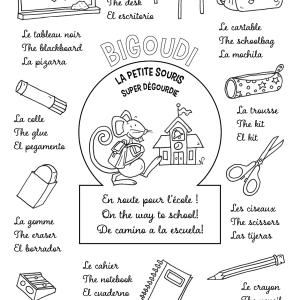 The desk
El escritorio
Le tableau noir
The blackboard
La pizarra
Le cartable
The schoolbag
La mochila
BIGOUDI
LA PETITE SOURIS
SUPER DÉGOURDIE
La colle
The glue
El pegamento
La trousse
The kit
El kit
En route pour l'école !
On the way to school!
De camino a la escuela!
La gomme
The eraser
El borrador
Les ciseaux
The scissors
Las tijeras
Le cahier
The notebook
El cuaderno
Le crayon